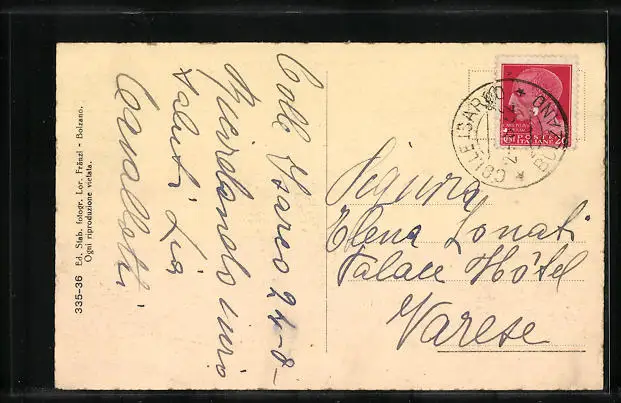 Colle Isarco 24-8-
Ricordando invio
saluti Lia
Cavallotti
335-36 Ed. Stab. fotogr. Lor. Fränzl - Bolzano.
Ogni riproduzione vietata.
COLLE ISARCO
BOLZANO
POSTE
ITALIANE
Signora
Elena Zonati
Palace Hôtel
Varese